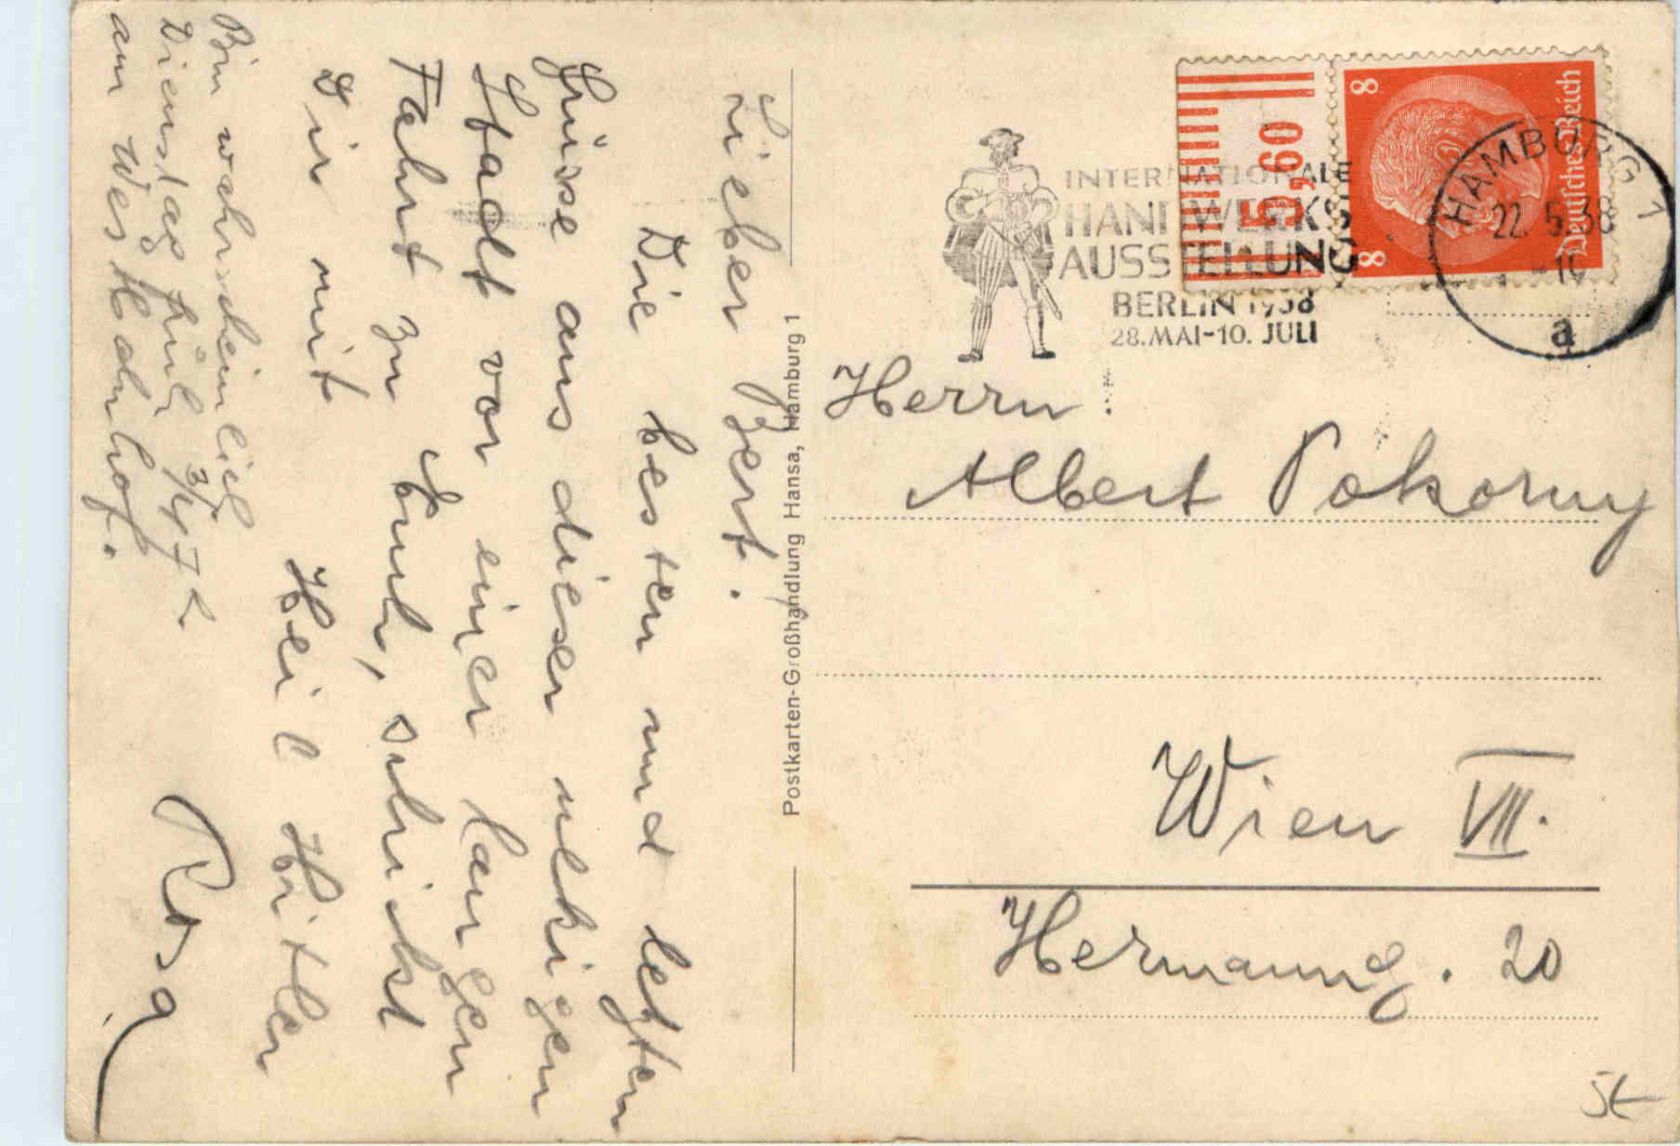 Lieber Bert.
Die besten und letzten
Grüsse aus dieser ulkigen
Stadt vor einer langen
Fahrt zu Euch, schickt
Dir mit
Heil Hitler
Bin wahrscheinlich
Dienstag früh 3/4 7 h
am Westbahnhof.
Postkarten-Großhandlung Hansa, Hamburg 1
INTERNATIONALE
HANDWERKS
AUSSTELLUNG
BERLIN 1938
28.MAI-10. JULI
5,60
8 8
Deutsches Reich
HAMBURG 1
22. 5. 38
a
Herrn
Albert Pokorny
Wien VII.
Hermanng. 20